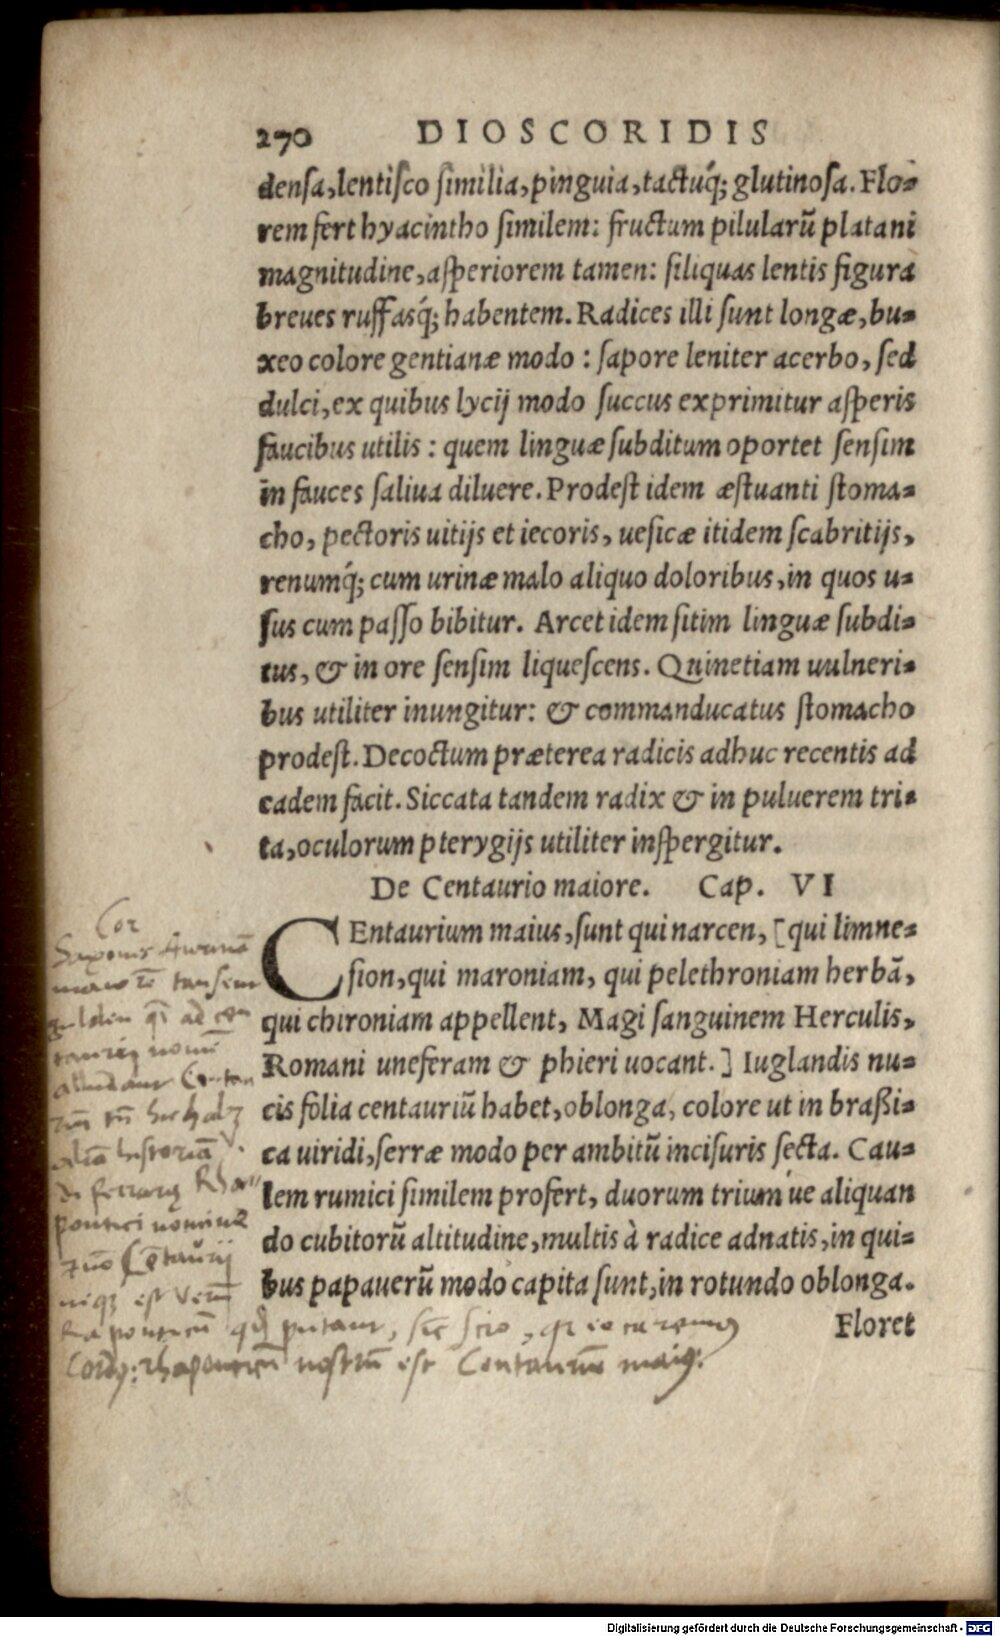 270 DIOSCORIDIS
densa, lentisco similia, pinguia, tactuq́; glutinosa. Flo-
rem fert hyacintho similem: fructum pilularũ platani
magnitudine, asperiorem tamen: siliquas lentis figura
breues ruffasq́; habentem. Radices illi sunt longæ, bu-
xeo colore gentianæ modo: sapore leniter acerbo, sed
dulci, ex quibus lycij modo succus exprimitur asperis
faucibus utilis: quem linguæ subditum oportet sensim
in fauces saliua diluere. Prodest idem æstuanti stoma-
cho, pectoris uitijs et iecoris, uesicæ itidem scabritijs,
renumq́; cum urinæ malo aliquo doloribus, in quos u-
sus cum passo bibitur. Arcet idem sitim linguæ subdi-
tus, & in ore sensim liquescens. Quinetiam uulneri-
bus utiliter inungitur: & commanducatus stomacho
prodest. Decoctum præterea radicis adhuc recentis ad
eadem facit. Siccata tandem radix & in puluerem tri-
ta, oculorum pterygijs utiliter inspergitur.
De Centaurio maiore. Cap. VI
CEntaurium maius, sunt qui narcen, [qui limne-
sion, qui maroniam, qui pelethroniam herbã,
qui chironiam appellent, Magi sanguinem Herculis,
Romani uneferam & phieri uocant.] Iuglandis nu-
cis folia centauriũ habet, oblonga, colore ut in braßi-
ca uiridi, serræ modo per ambitũ incisuris secta. Cau-
lem rumici similem profert, duorum trium ue aliquan
do cubitorũ altitudine, multis à radice adnatis, in qui-
bus papauerũ modo capita sunt, in rotundo oblonga.
Floret
Cor
alia historiã
pontici nomine
est Verũ
putant, sic scio
nostrũ est Centauriũ maiq:
Digitalisierung gefördert durch die Deutsche Forschungsgemeinschaft - DFG